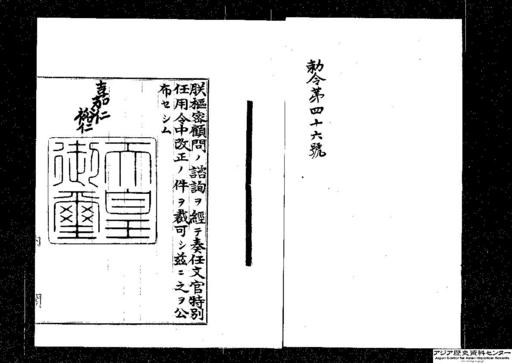 勅令第四十六號
朕樞密顧問ノ諮詢ヲ經テ奏任文官特別
任用令中改正ノ件ヲ裁可シ茲ニ之ヲ公
布セシム
嘉仁
裕仁
天皇
御璽
内閣
アジア歴史資料センター
Japan Center for Asian Historical Records